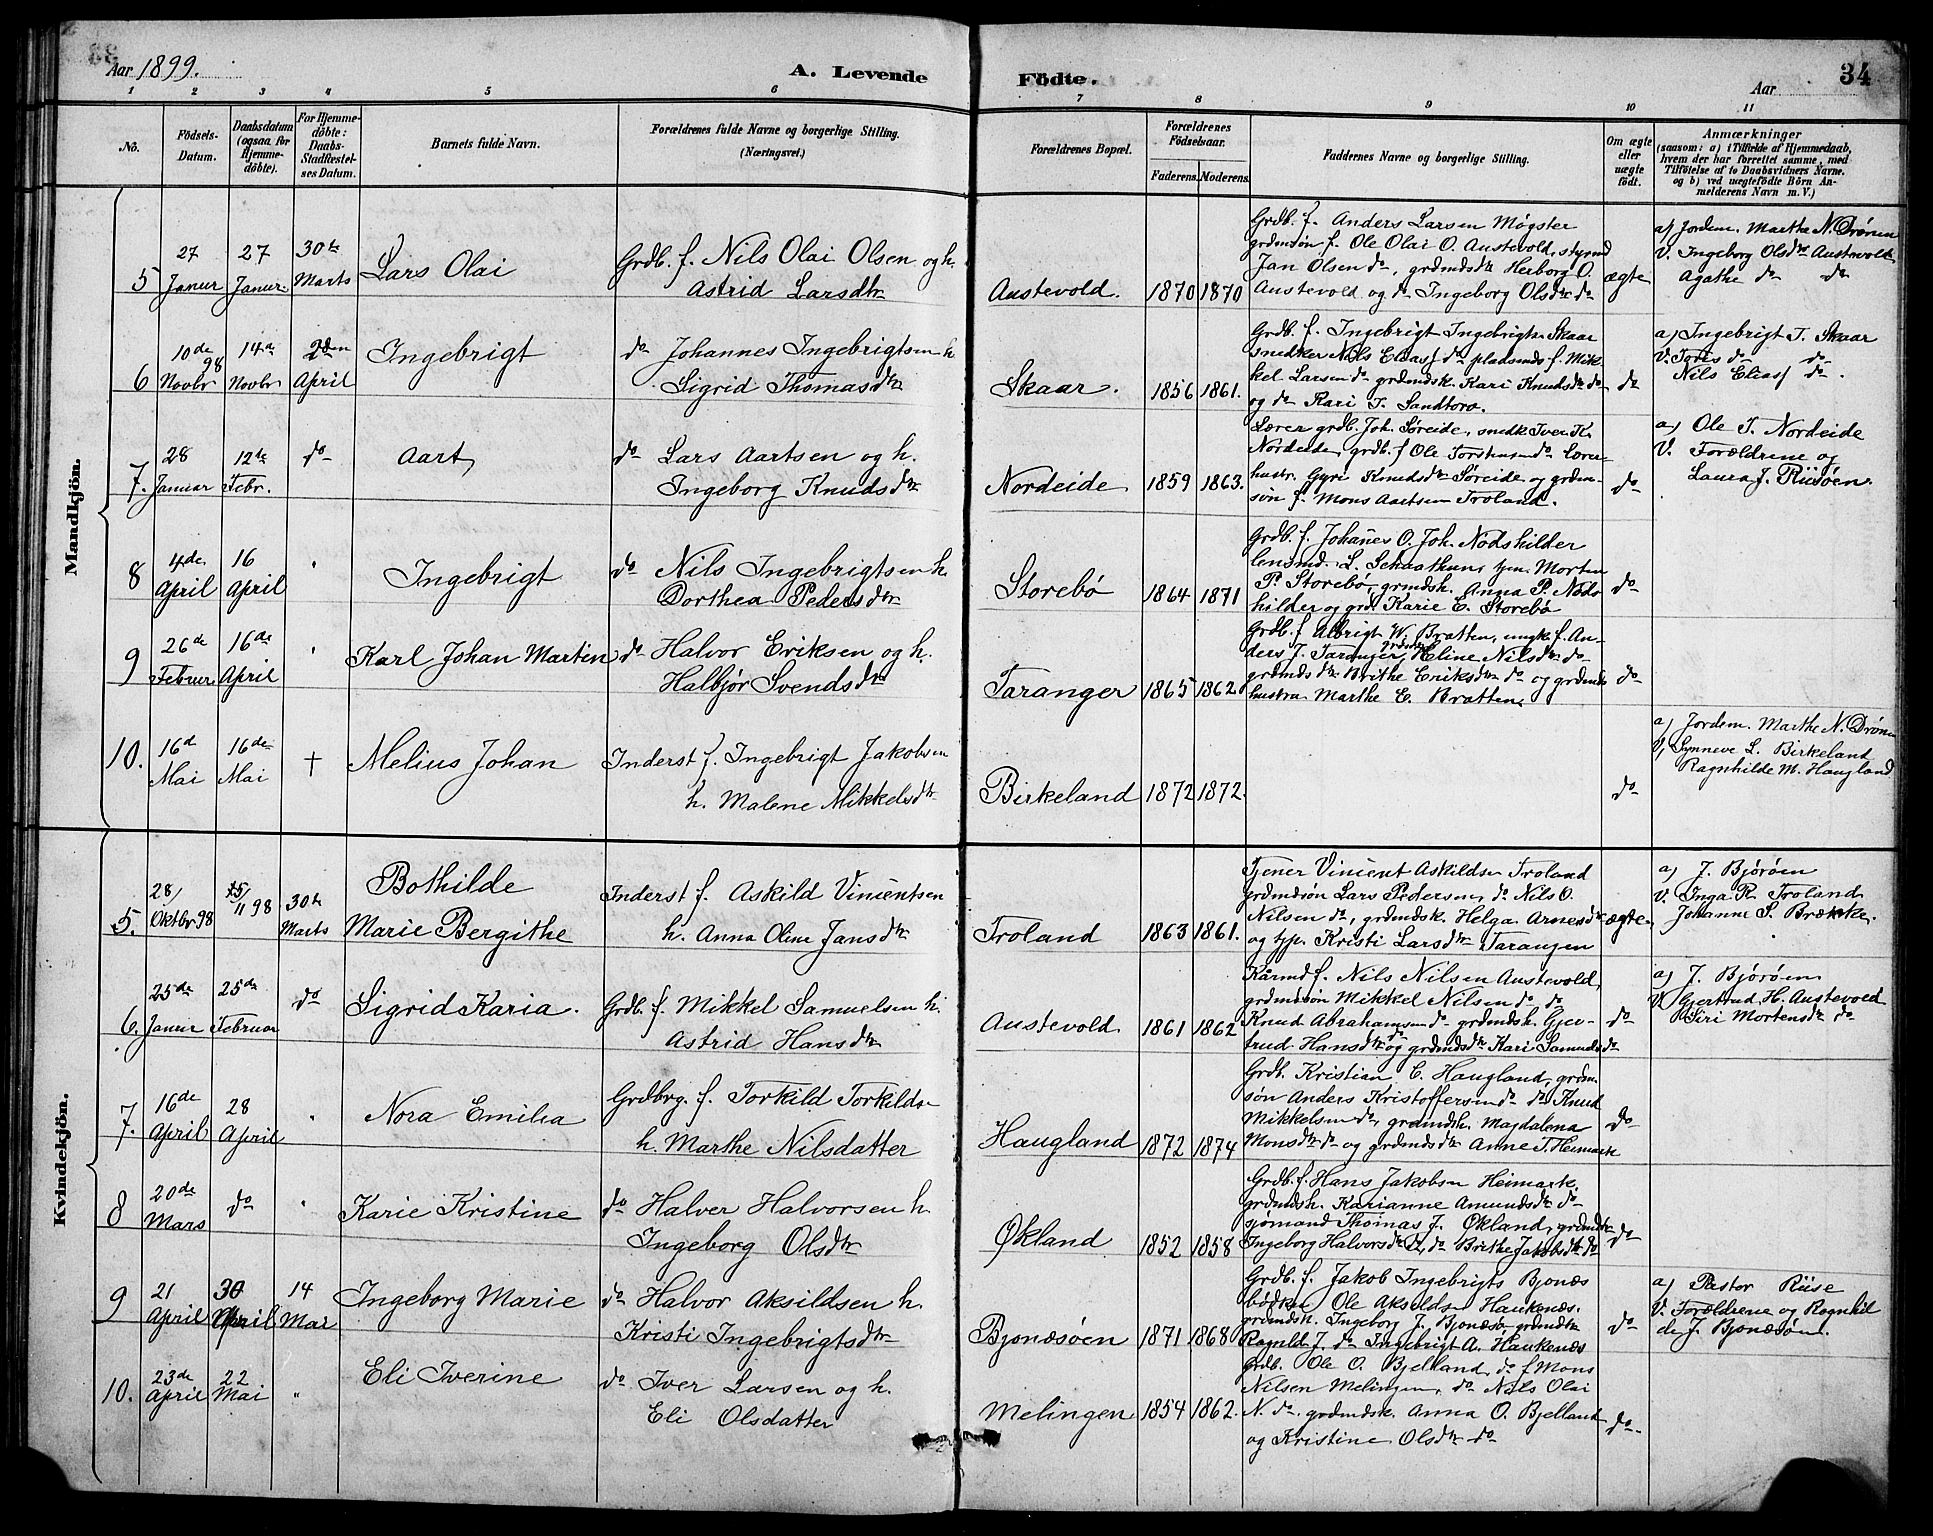 Aar 1899. A. Levende Födte. Aar 34
1 2 3 4 5 6 7 8 9 10 11
No. Födsels-Datum. Daabsdatum (ogsaa for Hjemme-döbte). For Hjemme-döbte: Daabs-Stadfæstel-ses Datum. Barnets fulde Navn. Forældrenes fulde Navne og borgerlige Stilling. (Næringsvei.) Forældrenes Bopæl. Forældrenes Födselsaar. Faderens. Moderens. Faddernes Navne og borgerlige Stilling. Om ægte eller uægte födt. Anmærkninger (saasom: a) i Tilfælde af Hjemmedaab, hvem der har forrettet samme, med Tilföielse af to Daabsvidners Navne, og b) ved uægtefödte Börn An-melderens Navn m. V.)
Mandkjön.
5 27 Januar 27 Januar 30te Marts Lars Olai
Grdb. f. Nils Olai Olsen og h.
Astrid Larsdtr
Austevold. 1870 1870
Grdb. f. Anders Larsen Møgster
grdmdsøn f. Ole Olai O. Austevold, styrmd
Jan Olsen do, grdmdsdtr Herborg O.
Austevold og do Ingeborg Olsdtr do
ægte
a) Jordem. Marthe N. Drönen
V. Ingeborg Olsdtr Austevold
Agathe do do
6 10de Novbr 98 14de Novbr 2den April Ingebrigt
do Johannes Ingebrigtsen h
Sigrid Thomasdtr
Skaar. 1856 1861.
Grdb. f. Ingebrigt Ingebrigts. Skaar
snedker Nils Eliass. do pladsmds f. Mik-
kel Larsen do grdmdsk. Kari Knudsdtr do
og do Kari T. Sandtorv.
do
a) Ingebrigt T. Skaar
V. do do
Nils Eliass. do.
7. 28 Januar 12te Febr. do Aart
do Lars Aartsen og h.
Ingeborg Knudsdtr
Nordeide 1859 1863.
Lærer grdb. Joh. Søreide, snedk. Iver K.
Nordeide, grdb. f Ole Torstensen do Lærer
hustr. Gyri Knudsdtr Søreide og grdm-
søn f. Mons Aartsen Troland.
do
a) Ole T. Nordeide
V. Forældrene og
Laura J. Riisöen.
8 4de April 16 April " Ingebrigt
do Nils Ingebrigtsen h.
Dorthea Pedersdtr
Storebö 1864 1871
Grdb. f. Johanes O. Joh. Nodshilder
lensmd. L. Morten
P. Storebø, grmdsk. Anna P. Nods
hilder og grd. Karie E. Storebø
do
9 26de Februar 16de April " Karl Johan Martin
do Halvor Eriksen og h.
Halbjör Svendsdtr
Taranger 1865 1862
Grdb. f Albrigt W. Bratten, ungk. f. An-
ders J. Taranger, grdmdsdtr Heline Nilsdtr do
grdmdsdtr Brithe Eriksdtr do og grdmds
hustru Marthe E. Bratten.
do
10. 16d Mai 16de Mai † Melius Johan
Inderst f. Ingebrigt Jakobsen
h. Malene Mikkelsdtr
Birkeland 1872 1872.
do
a) Jordem. Marthe N. Drönen
V, Synneve L. Birkeland
Ragnhilde M. Haugland
Kvindekjön.
5. 28/ Oktbr 98 15/11 98 30te Marts Bothilde
Marie Bergithe
Inderst f. Askild Vincentsen
h. Anna Oline Jansdtr
Troland 1863 1861.
Tjener Vincent Askildsen Troland
grdmdsøn Lars Pedersen, do Nils O.
Nilsen do, grdmdsk. Helga Arnesdtr
og tjp. Kristi Larsdtr Taranger
ægte.
a) J. Björöen
V. Inga R. Troland
Johanne S. Brække.
6. 25de Januar 25de Februar do Sigrid Karia.
Grdb. f. Mikkel Samuelsen h.
Astrid Hansdtr
Austevold 1861 1862
Kårmd f. Nils Nilsen Austevold,
grdmdsøn Mikkel Nilsen do, do
Knud Abrahamsen do grdmdsk. Gjer-
trud Hansdtr do og grdmdsdtr Kari Samuelsdo
do
a) J. Björöen
V. Gjertrud H. Austevold
Siri Mortensdtr do
7. 16de April 28 April " Nora Emilia
Grdbrg. f. Torkild Torkilds.
h. Marthe Nilsdatter
Haugland 1872 1874
Grdb. Kristian E. Haugland, grdm-
søn Anders Kristoffersen do do Knud
Mikkelsen do, grdmdsk. Magdalena
Monsdtr do og grdmdsdtr Anne T. Heimark
do
8 20de Mars do " Karie Kristine
do Halver Halvorsen h.
Ingeborg Olsdtr
Økland 1852 1858
Grdb. f. Hans Jakobsen Heimark.
grdmdsh. Karianne Amundsdtr do
sjömand Thomas J. Økland, grdmdtr
Ingeborg Halvorsdtr do, do Brithe Jakobsdtr do
do
9 21 April 30 April 14 Mai Ingeborg Marie
do Halvor Aksildsen h.
Kristi Ingebrigtsdtr
Bjonæsöen 1871 1868
Grdb. f. Jakob Ingebrigts Bjonæs
bødker Ole Aksilds Haukenæs.
grdmdsk. Ingeborg J. Bjonæsö grdmdtr
Ragnild J. do Ingebrigt A. Haukenæs
do
a) Pastor Riise
V. Forældrene og Ragnhil
de J. Bjonæsöen.
10. 23de April 22 Mai " Eli Iverine
do Iver Larsen og h.
Eli Olsdatter
Melingen 1854 1862.
Grdb. Ole O. Bjelland, do f Mons
Nilsen Melingen, do Nils Olai
N. do grdmdsk. Anna O. Bjelland
og Kristine Olsdtr do
do